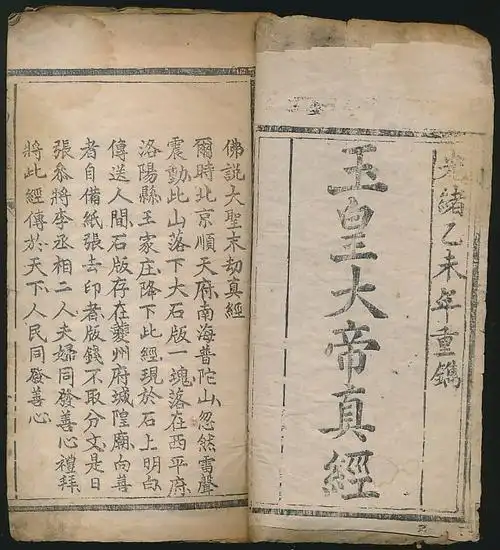 光緒乙未年重鐫
玉皇大帝真經
佛說大聖末劫真經
爾時北京順天府南海普陀山忽然雷聲
震動此山落下大石版一塊落在西平府
洛陽縣王家庄降下此經現於石上明白
傳送人間石版存在夔州府城隍廟向善
者自備紙張去印者版錢不取分文是日
張叅將李丞相二人夫婦同發善心禮拜
將此經傳於天下人民同發善心